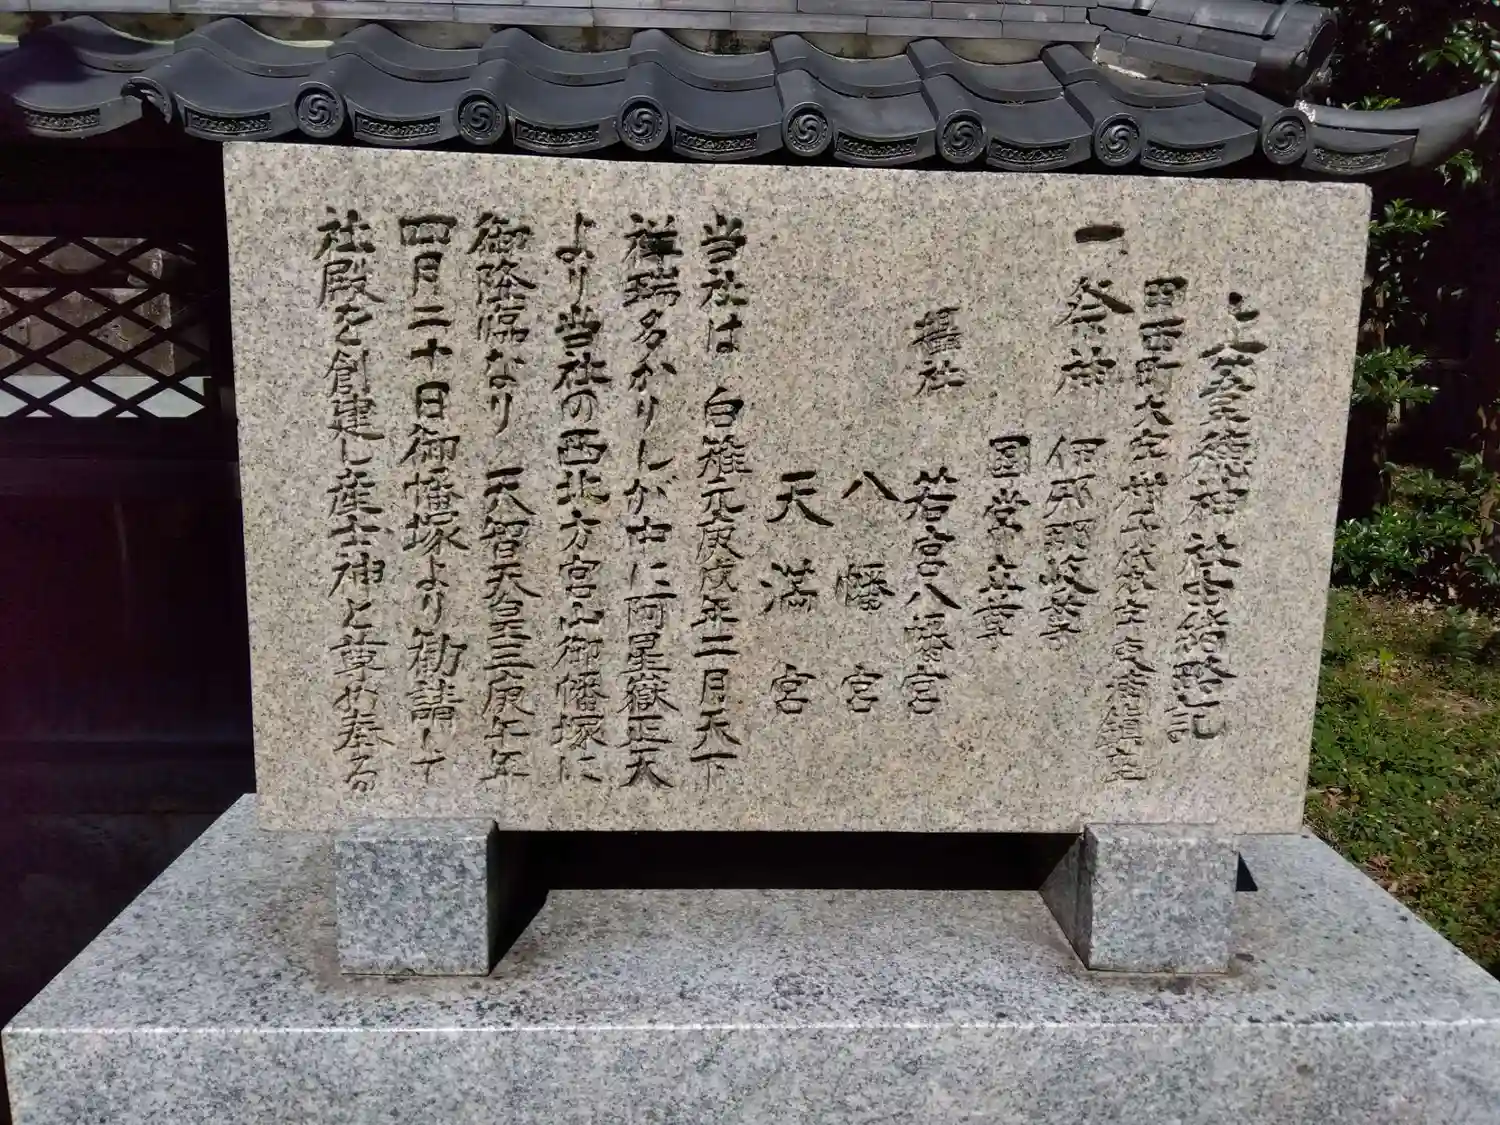 上葦穂神社由緒略記
田西町大字柑子袋字東商鎮座
一祭神 伊邪諾岐尊
国常立尊
攝社 若宮八幡宮
八幡宮
天満宮
当社は 白雉元庚戌年二月天下
祥瑞多かりしが中に阿星嶽正天
より当社の西北方宮山御幡塚に
御降臨なり 天智天皇三庚午年
四月二十日御幡塚より勧請して
社殿を創建し産土神と尊め奉る